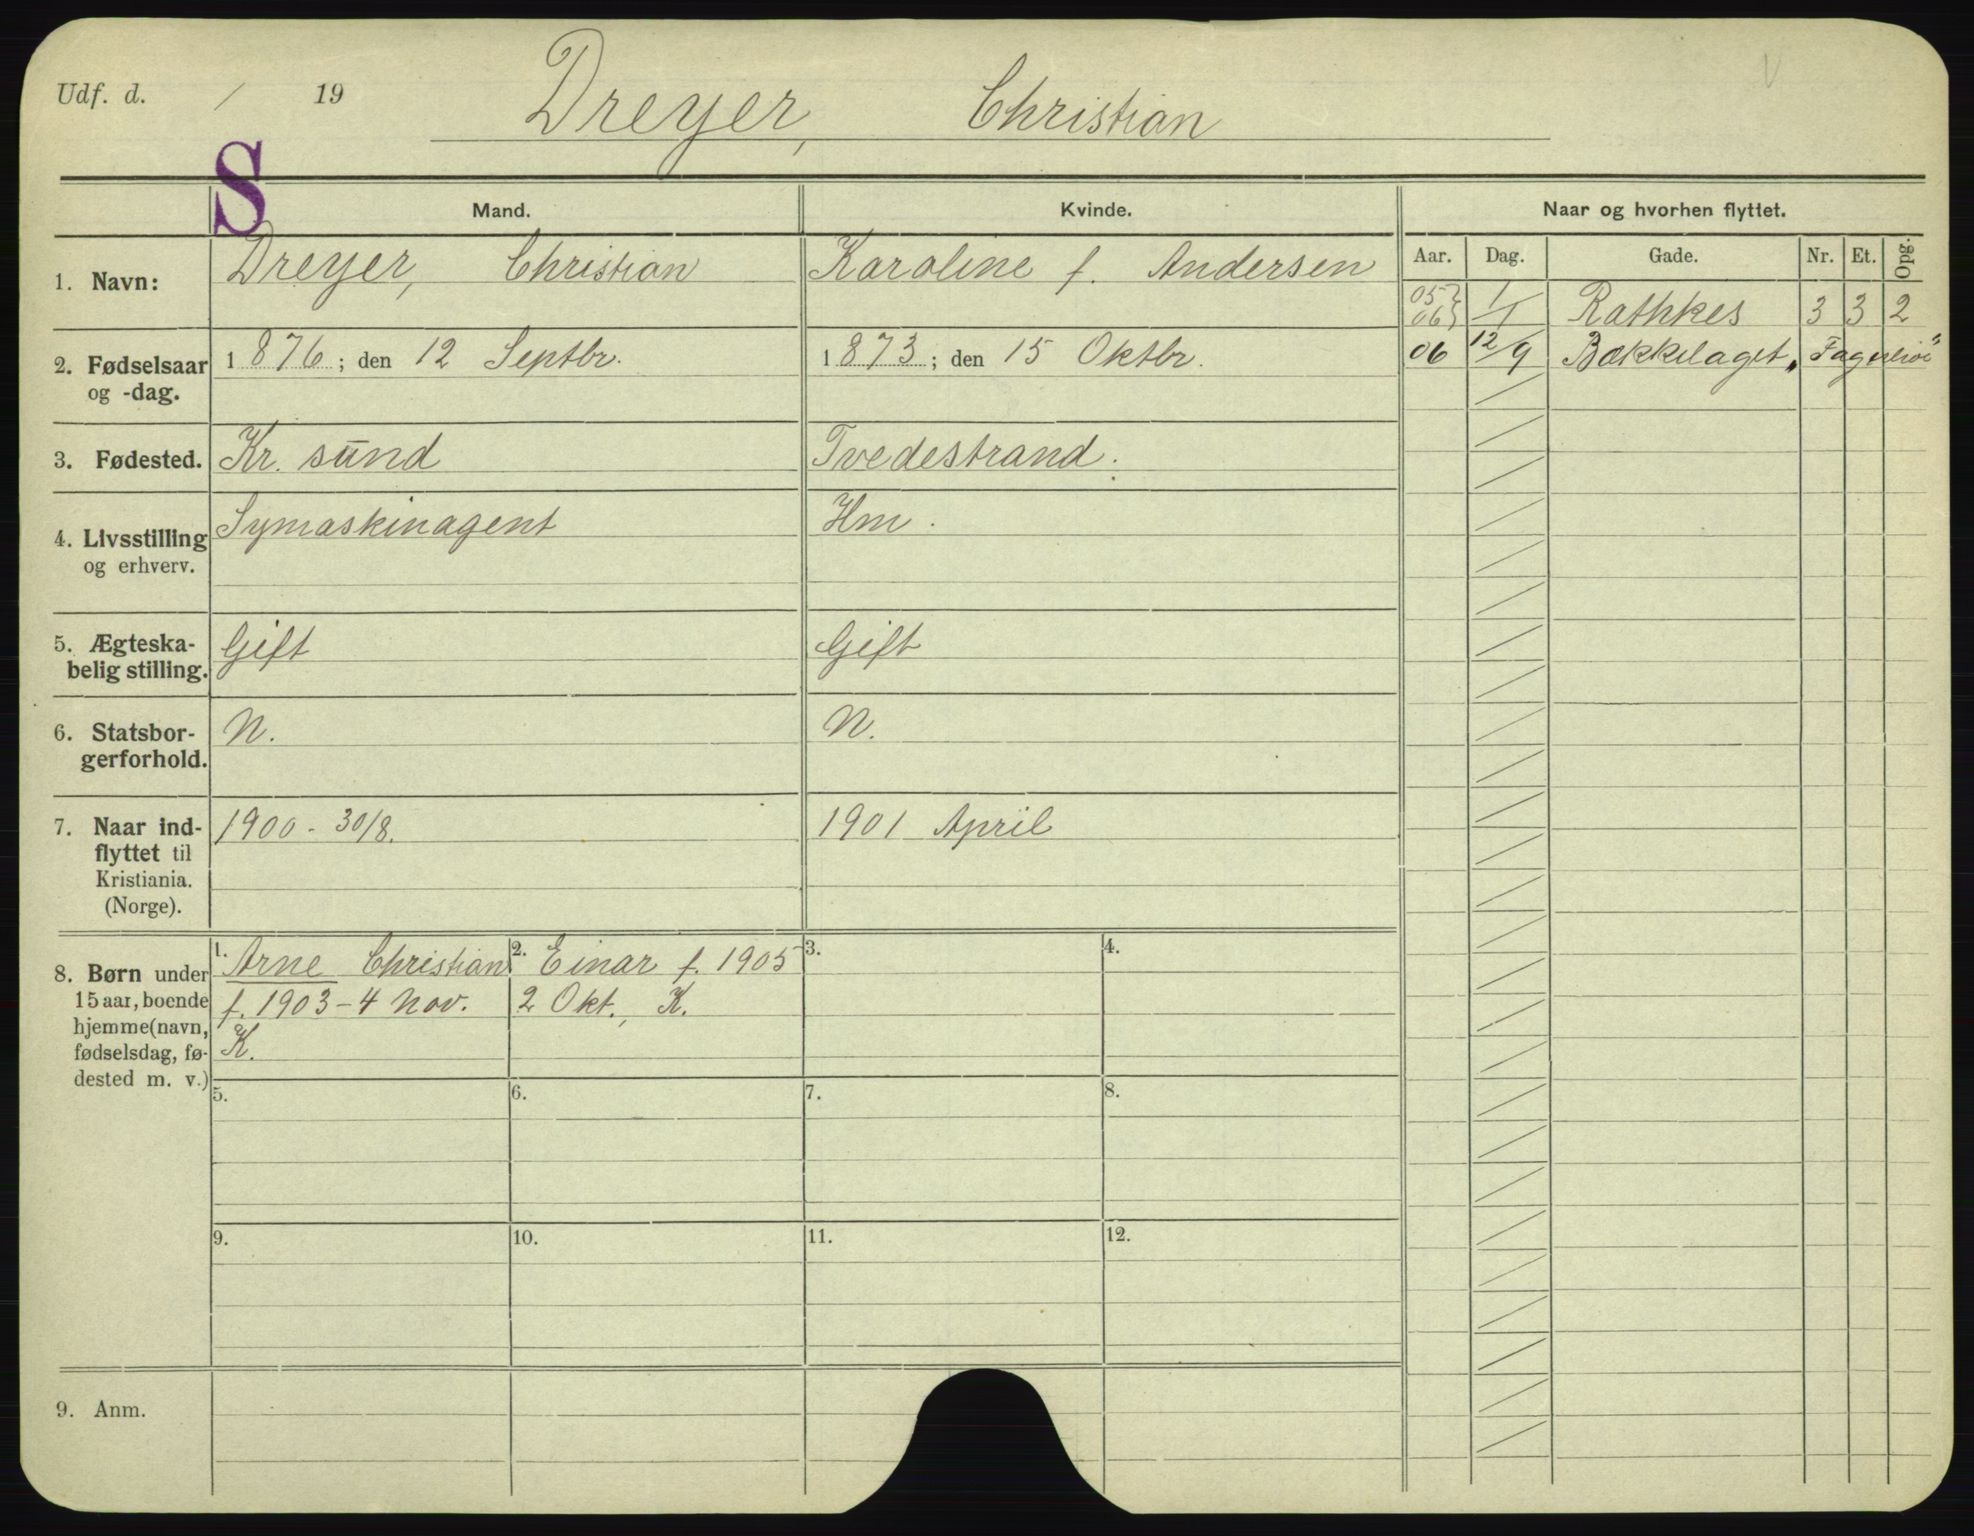 Udf. d. / 19
Dreyer, Christian
V
S
Mand.
Kvinde.
Naar og hvorhen flyttet.
Aar. Dag. Gade. Nr. Et. Opg.
1. Navn:
Dreyer, Christian
Karoline f. Andersen
05}
06} 1/1 Rathkes 3 3 2
06 12/9 Bækkelaget, "Fagerlivi"
2. Fødselsaar
og -dag.
1876; den 12 Septbr.
1873; den 15 Oktbr.
3. Fødested.
Kr. sund
Tvedestrand.
4. Livsstilling
og erhverv.
Symaskinagent
Hm.
5. Ægteska-
belig stilling.
Gift
Gift
6. Statsbor-
gerforhold.
N.
N.
7. Naar ind-
flyttet til
Kristiania.
(Norge).
1900 - 30/8.
1901 April
8. Børn under
15 aar, boende
hjemme (navn,
fødselsdag, fø-
dested m. v.)
1. Arne Christian
f. 1903 - 4 Nov.
K.
2. Einar f. 1905
2 Okt., K.
3.
4.
5.
6.
7.
8.
9.
10.
11.
12.
9. Anm.